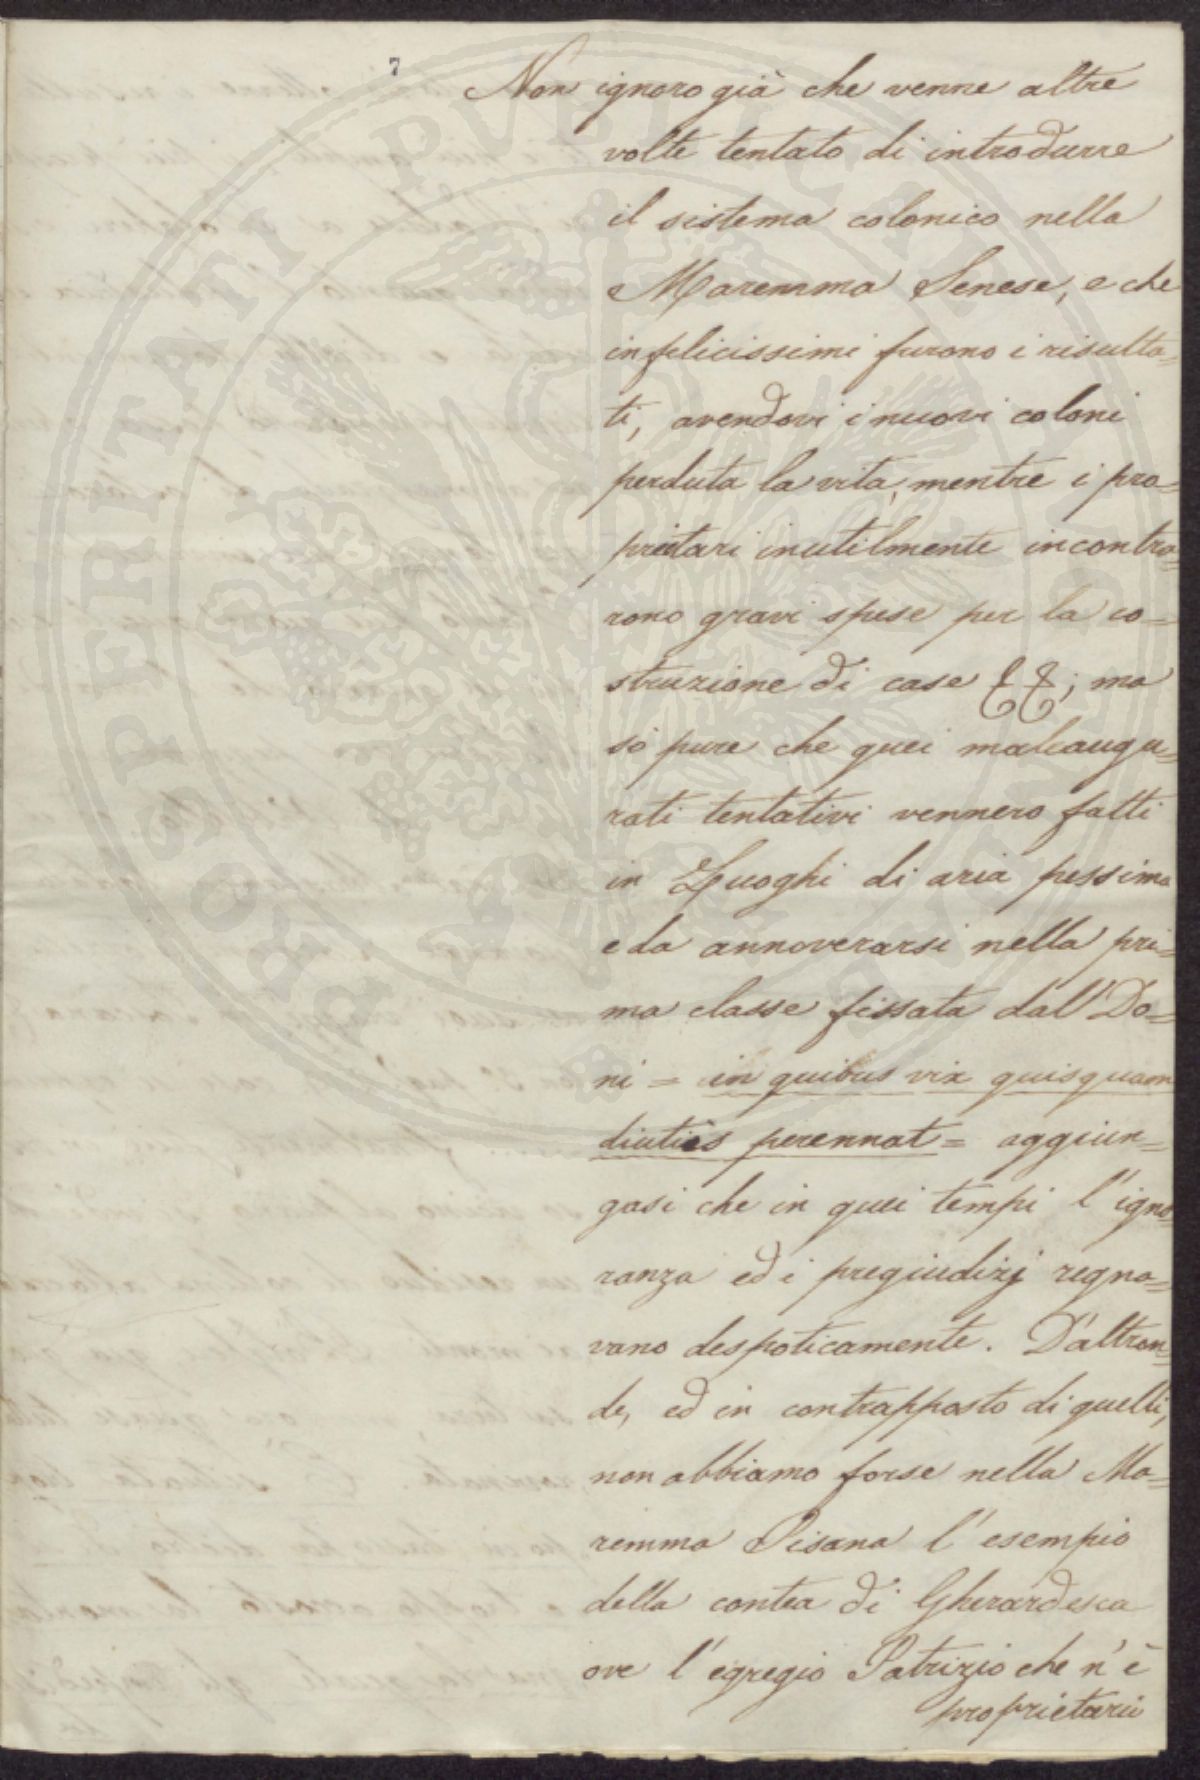 7
Non ignoro già che venne altre
volte tentato di introdurre
il sistema colonico nella
Maremma Senese, e che
infelicissimi furono i risulta=
ti, avendovi i nuovi coloni
perduta la vita, mentre i pro=
prietari inutilmente incontra=
rono gravi spese per la co=
struzione di case &&; ma
sò pure che quei malaugu=
rati tentativi vennero fatti
in Luoghi di aria pessima
e da annoverarsi nella pri=
ma classe fissata dall'Do=
ni = in quibus vix quisquam
diutiùs perennat = aggiun=
gasi che in quei tempi l'igno=
ranza ed i pregiudizj regna=
vano despoticamente. D'altron=
de, ed in contrapposto di quelli,
non abbiamo forse nella Ma=
remma Pisana l'esempio
della contea di Gherardesca
ove l'egregio Patrizio che n'è
proprietario
PROSPERITATI PVBLICAE